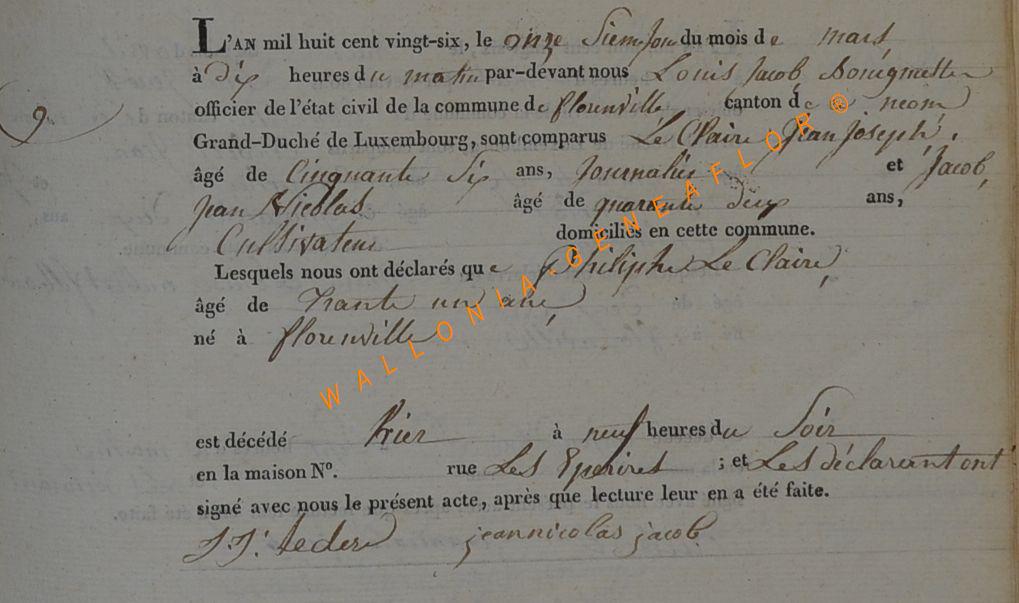 9.
L'AN mil huit cent vingt-six, le onze Siem Jou du mois de mars
à Dix heures du matin par-devant nous Louis Jacob
officier de l'état civil de la commune de florenville canton de neom
Grand-Duché de Luxembourg, sont comparus Le Claire Jean Joseph,
âgé de Cinquante Six ans, Journalier et Jacob,
Jean Nicolas âgé de quarante deux ans,
Cultivateur domiciliés en cette commune.
Lesquels nous ont déclarés que Philiphe Le Claire,
âgé de trante un ans,
né à florenville
est décédé hier à neuf heures du Soir
en la maison N°. rue Les Eperires ; et Les déclarant ont
signé avec nous le présent acte, après que lecture leur en a été faite.
J. J. leclere jean nicolas jacob
WALLONIA-GENEAFLOR ©